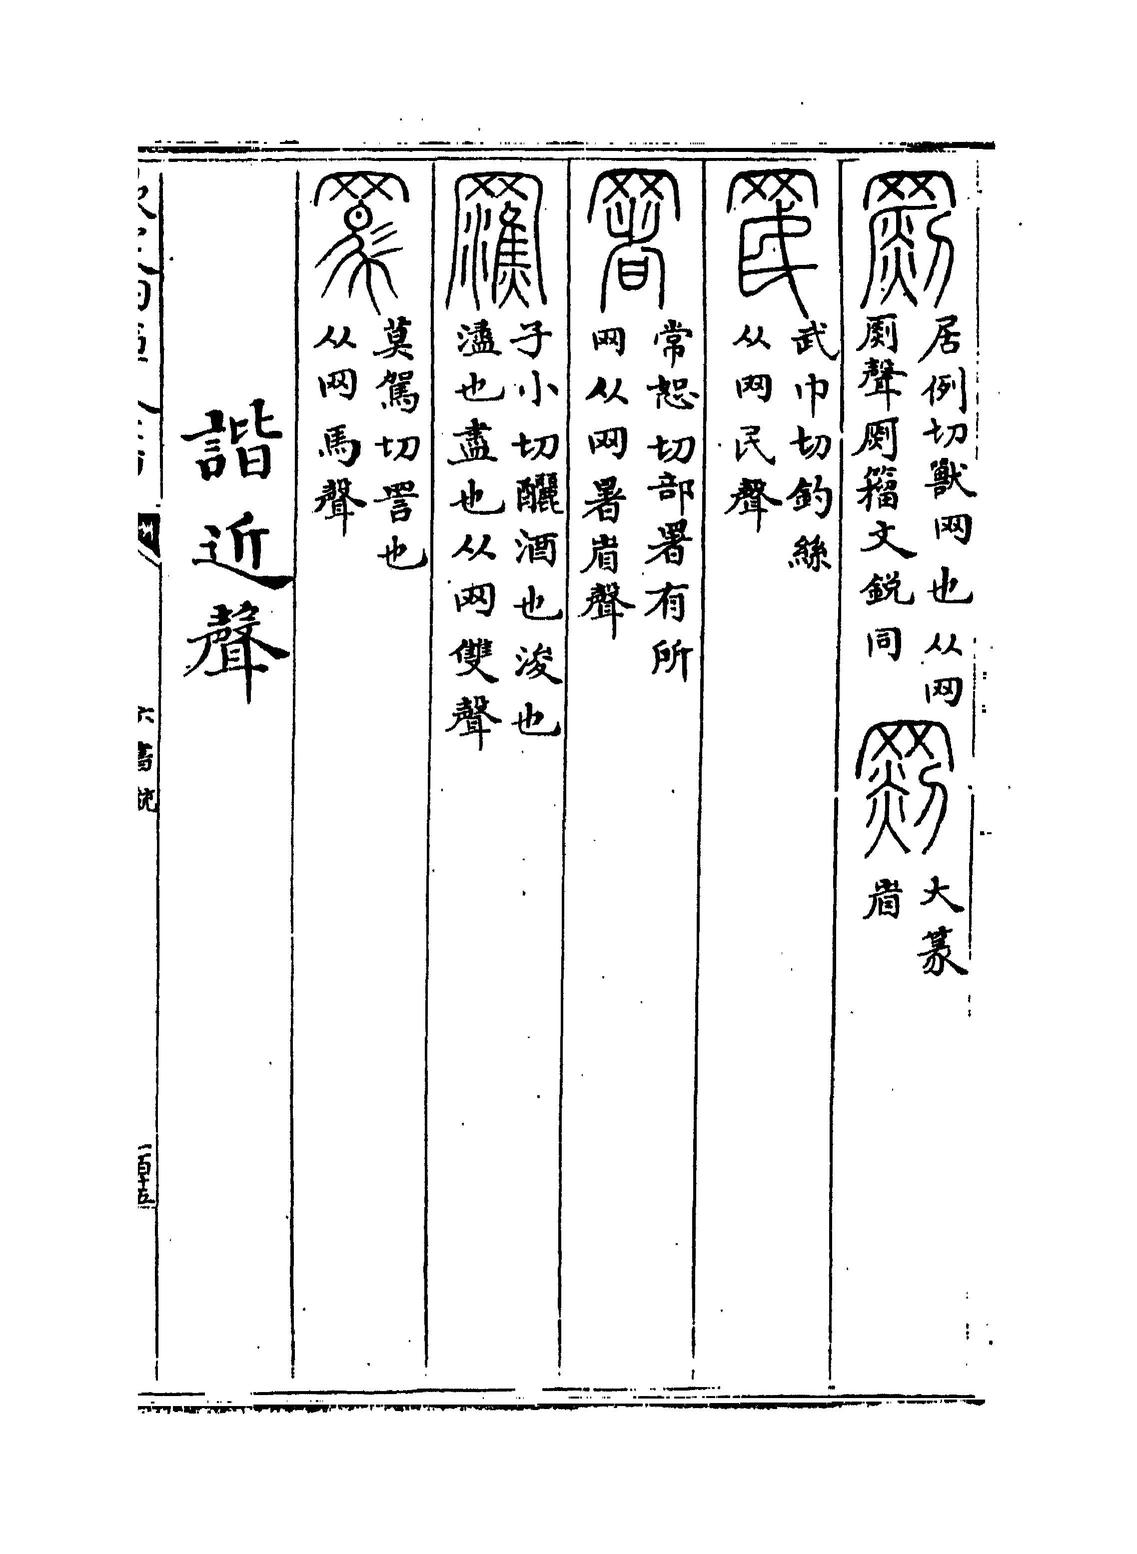 罽居例切獸网也从网
厠聲厠籀文鋭同
罽大篆
省
罠武巾切釣絲
从网民聲
署常恕切部署有所
网从网署省聲
子小切釃酒也浚也
濜也盡也从网雙聲
罵莫駕切詈也
从网馬聲
諧近聲
六書統